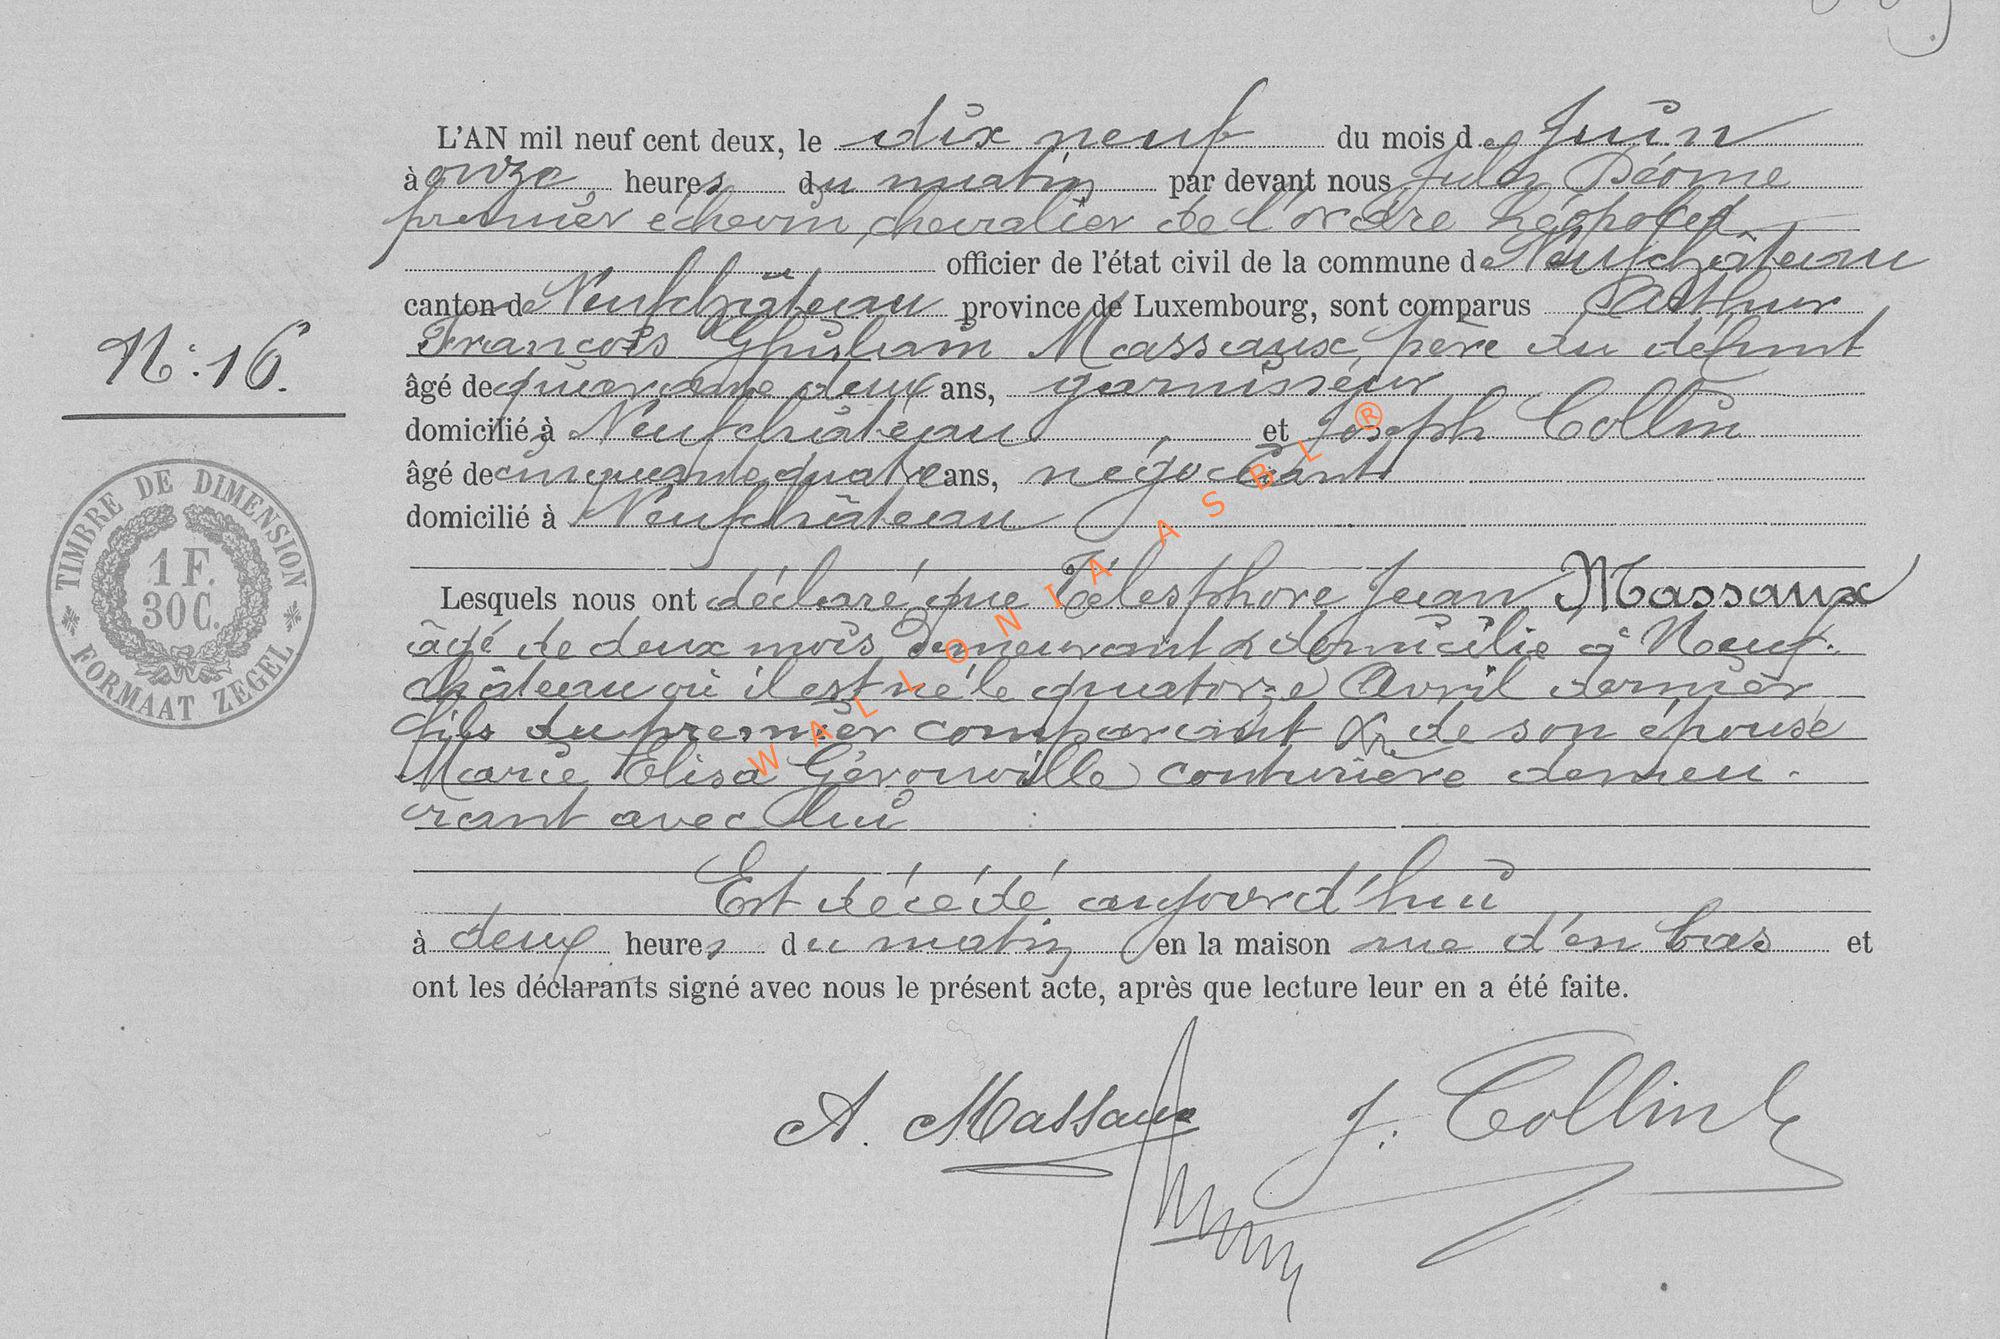 L'AN mil neuf cent deux, le dix neuf du mois de Juin
à onze heures du matin par devant nous Jules Déome
premier échevin, chevalier de l'ordre Léopold
officier de l'état civil de la commune de Neufchâteau
canton de Neufchâteau province de Luxembourg, sont comparus Arthur
François Ghislain Massaux, père du défunt
N°: 16.
âgé de quarante deux ans, garnisseur
domicilié à Neufchâteau et Joseph Collin
âgé de cinquante quatre ans, négociant
domicilié à Neufchâteau
TIMBRE DE DIMENSION
1 F.
30 C.
FORMAAT ZEGEL
Lesquels nous ont déclaré que Télesphore Jean Massaux
âgé de deux mois demeurant & domicilié à Neuf-
château où il est né le quatorze Avril dernier
fils du premier comparant & de son épouse
Marie Elisa Gérouville couturière demeu-
rant avec lui
Est décédé aujourd'hui
à deux heures du matin en la maison rue d'en bas et
ont les déclarants signé avec nous le présent acte, après que lecture leur en a été faite.
A. Massaux J. Collin
WALLONIA ASBL ®